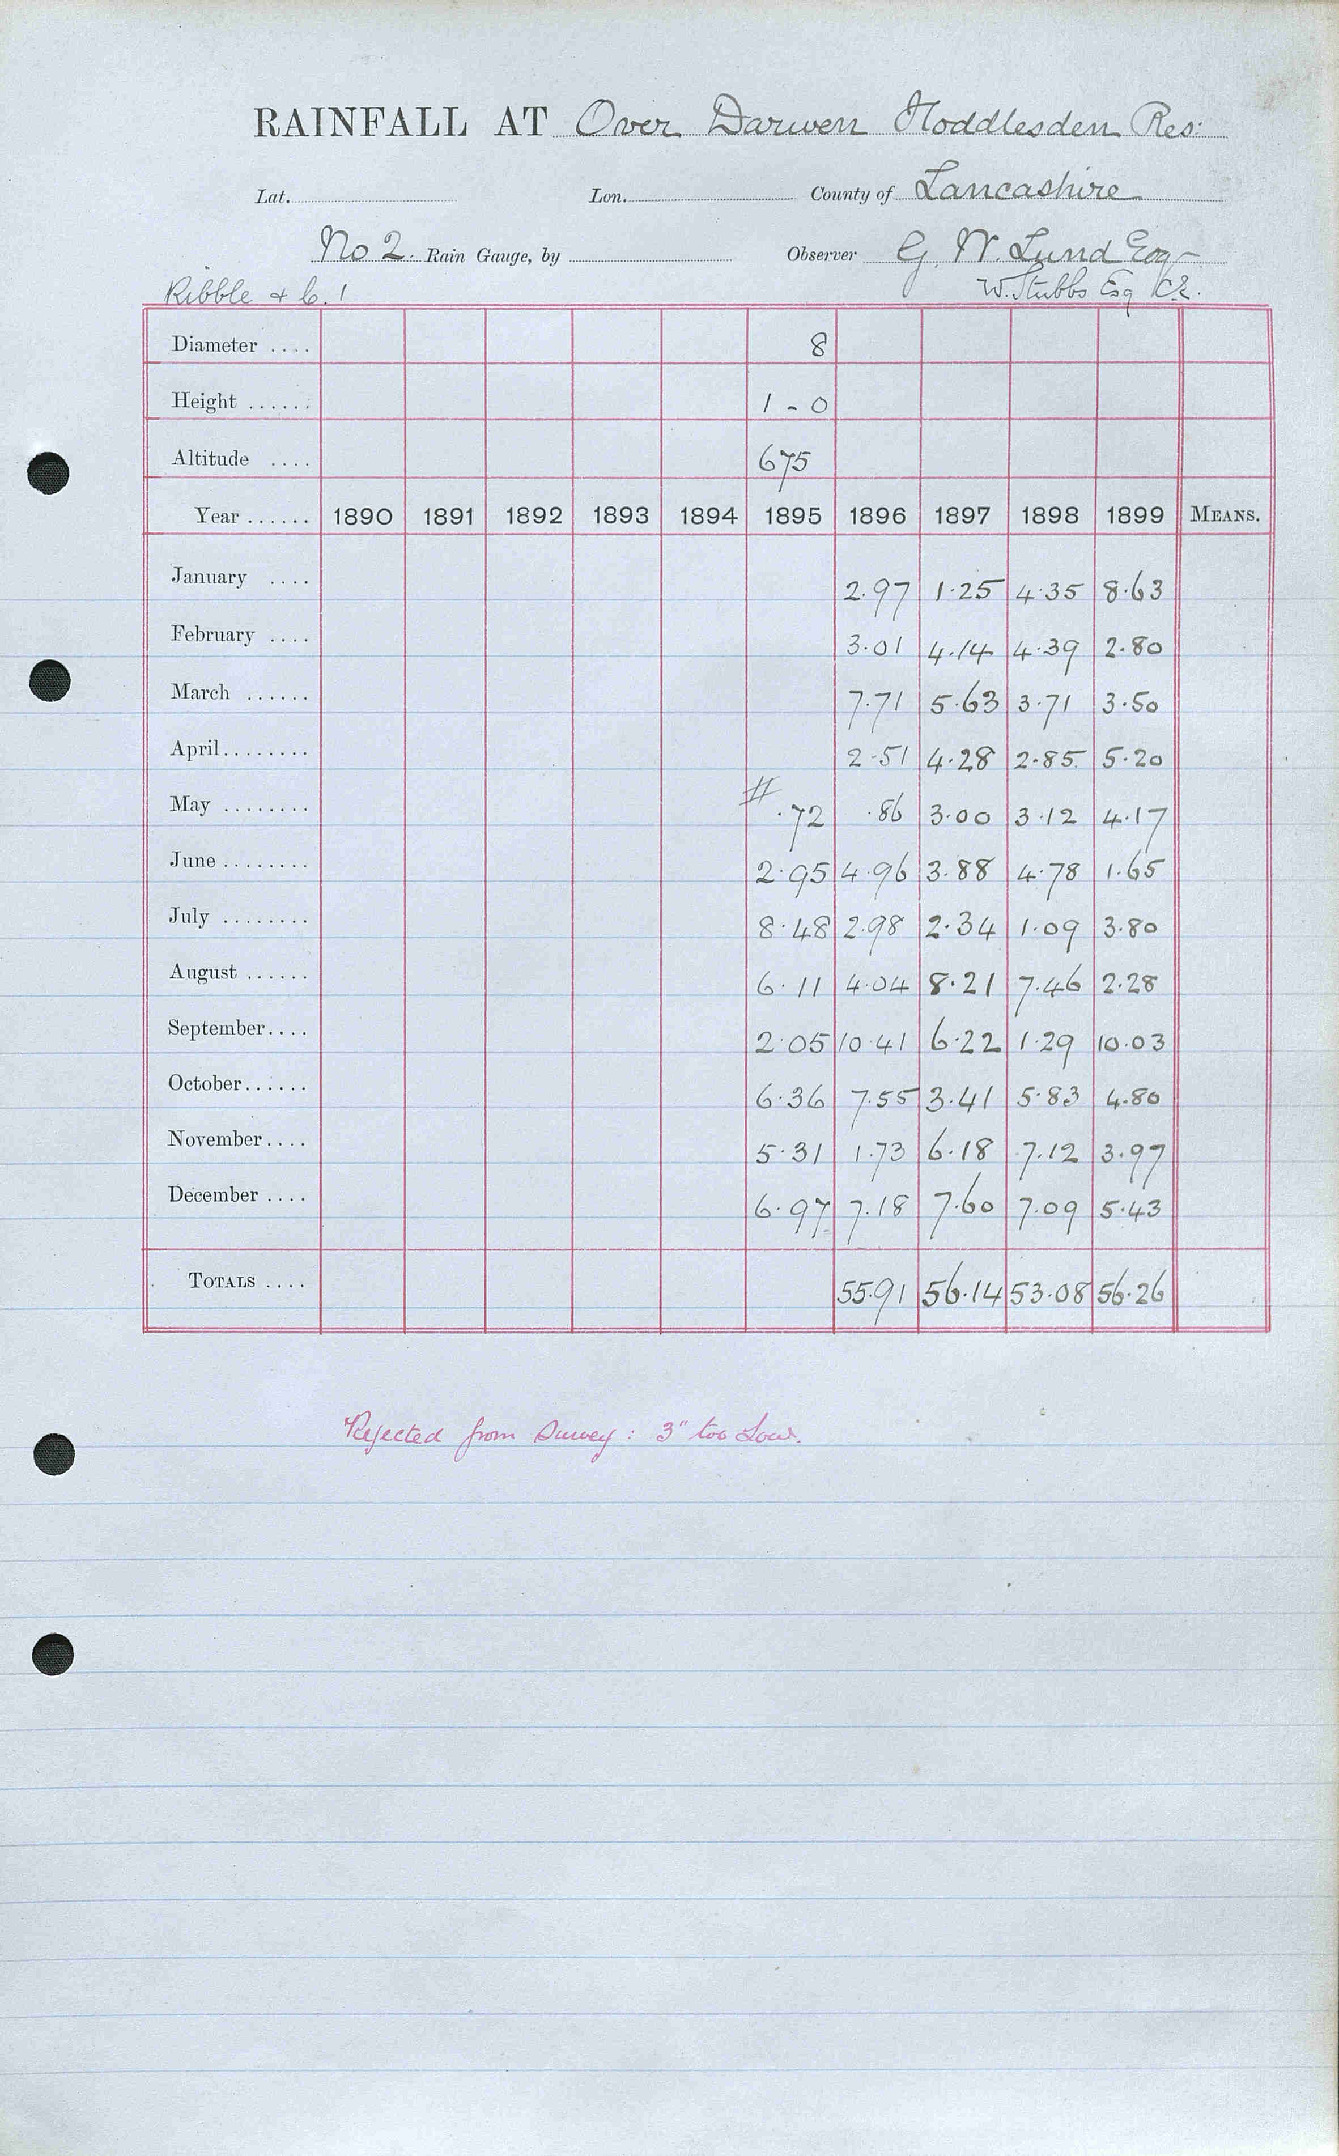 RAINFALL AT Over Darwen Hoddlesden Res:
Lat. Lon. County of Lancashire
No 2. Rain Gauge, by Observer G. W. Lund Esq
Ribble & C. 1 W. Stubbs Esq CE.
Diameter .... 8
Height ...... 1 - 0
Altitude .... 675
Year ...... 1890 1891 1892 1893 1894 1895 1896 1897 1898 1899 MEANS.
January .... 2.97 1.25 4.35 8.63
February .... 3.01 4.14 4.39 2.80
March ...... 7.71 5.63 3.71 3.50
April........ 2.51 4.28 2.85 5.20
May ........ # .72 .86 3.00 3.12 4.17
June ........ 2.95 4.96 3.88 4.78 1.65
July ........ 8.48 2.98 2.34 1.09 3.80
August ...... 6.11 4.04 8.21 7.46 2.28
September.... 2.05 10.41 6.22 1.29 10.03
October...... 6.36 7.55 3.41 5.83 4.80
November.... 5.31 1.73 6.18 7.12 3.97
December .... 6.97 7.18 7.60 7.09 5.43
TOTALS .... 55.91 56.14 53.08 56.26
Rejected from Survey: 3" too Low.